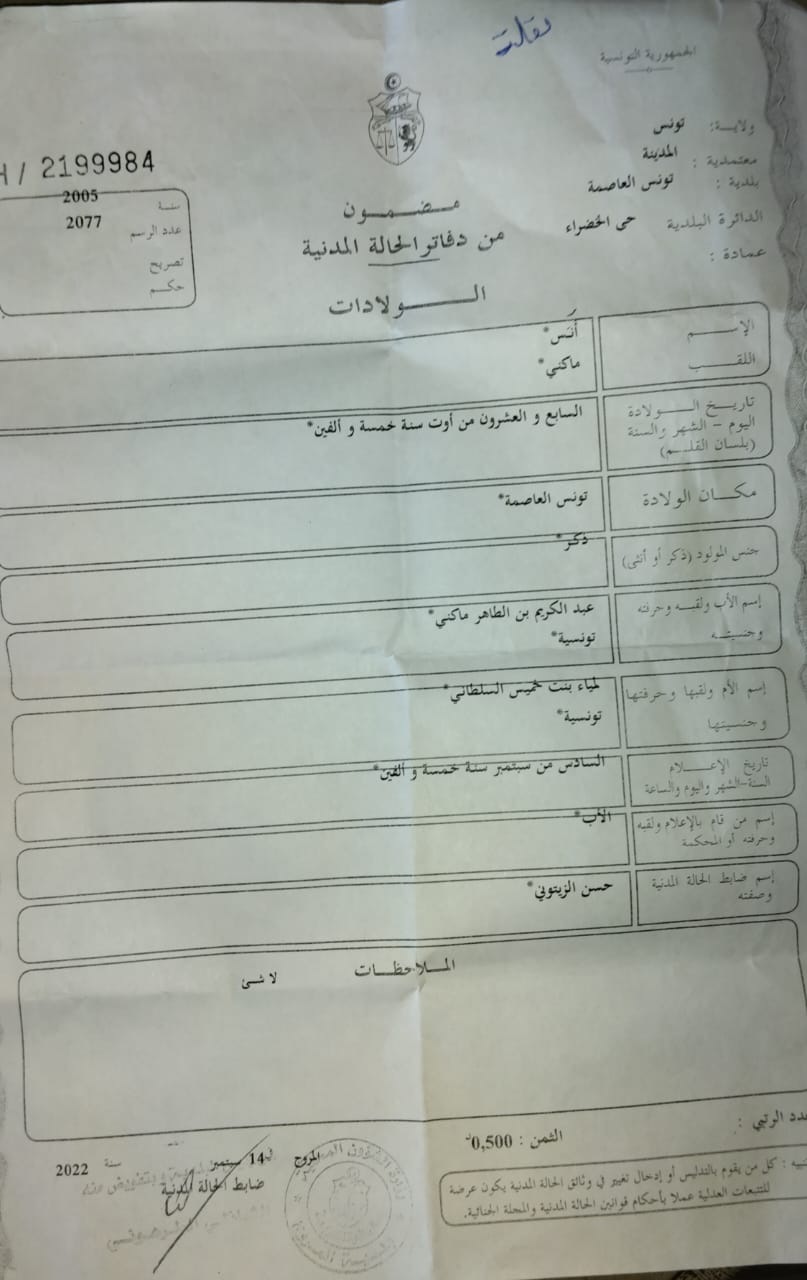 الجمهورية التونسية
ولاية: تونس
معتمدية : المدينة
بلدية : تونس العاصمة
الدائرة البلدية حي الخضراء
عمادة :
H / 2199984
سنة 2005
عدد الرسم 2077
تصريح
حكم
مضمون
من دفاتر الحالة المدنية
الولادات
الإسم أنس*
اللقب ماكني*
تاريخ الولادة
اليوم - الشهر والسنة
(بلسان القلم)
السابع و العشرون من أوت سنة خمسة و ألفين*
مكان الولادة تونس العاصمة*
جنس المولود (ذكر أو أنثى) ذكر*
إسم الأب ولقبه وحرفته عبد الكريم بن الطاهر ماكني*
وجنسيته تونسية*
إسم الأم ولقبها وحرفتها لمياء بنت خميس السلطاني*
وجنسيتها تونسية*
تاريخ الإعلام السادس من سبتمبر سنة خمسة و ألفين*
السنة-الشهر واليوم والساعة
إسم من قام بالإعلام ولقبه الأب*
وحرفته أو المحكمة
إسم ضابط الحالة المدنية حسن الزيتوني*
وصفته
الملاحظات
لا شئ
عدد الرتبي :
الثمن : 0,500د
تنبيه : كل من يقوم بالتدليس أو إدخال تغيير في وثائق الحالة المدنية يكون عرضة
للتتبعات العدلية عملا بأحكام قوانين الحالة المدنية والمجلة الجنائية.
المروج في 14 سبتمبر سنة 2022
ضابط الحالة المدنية
وبتفويض منه